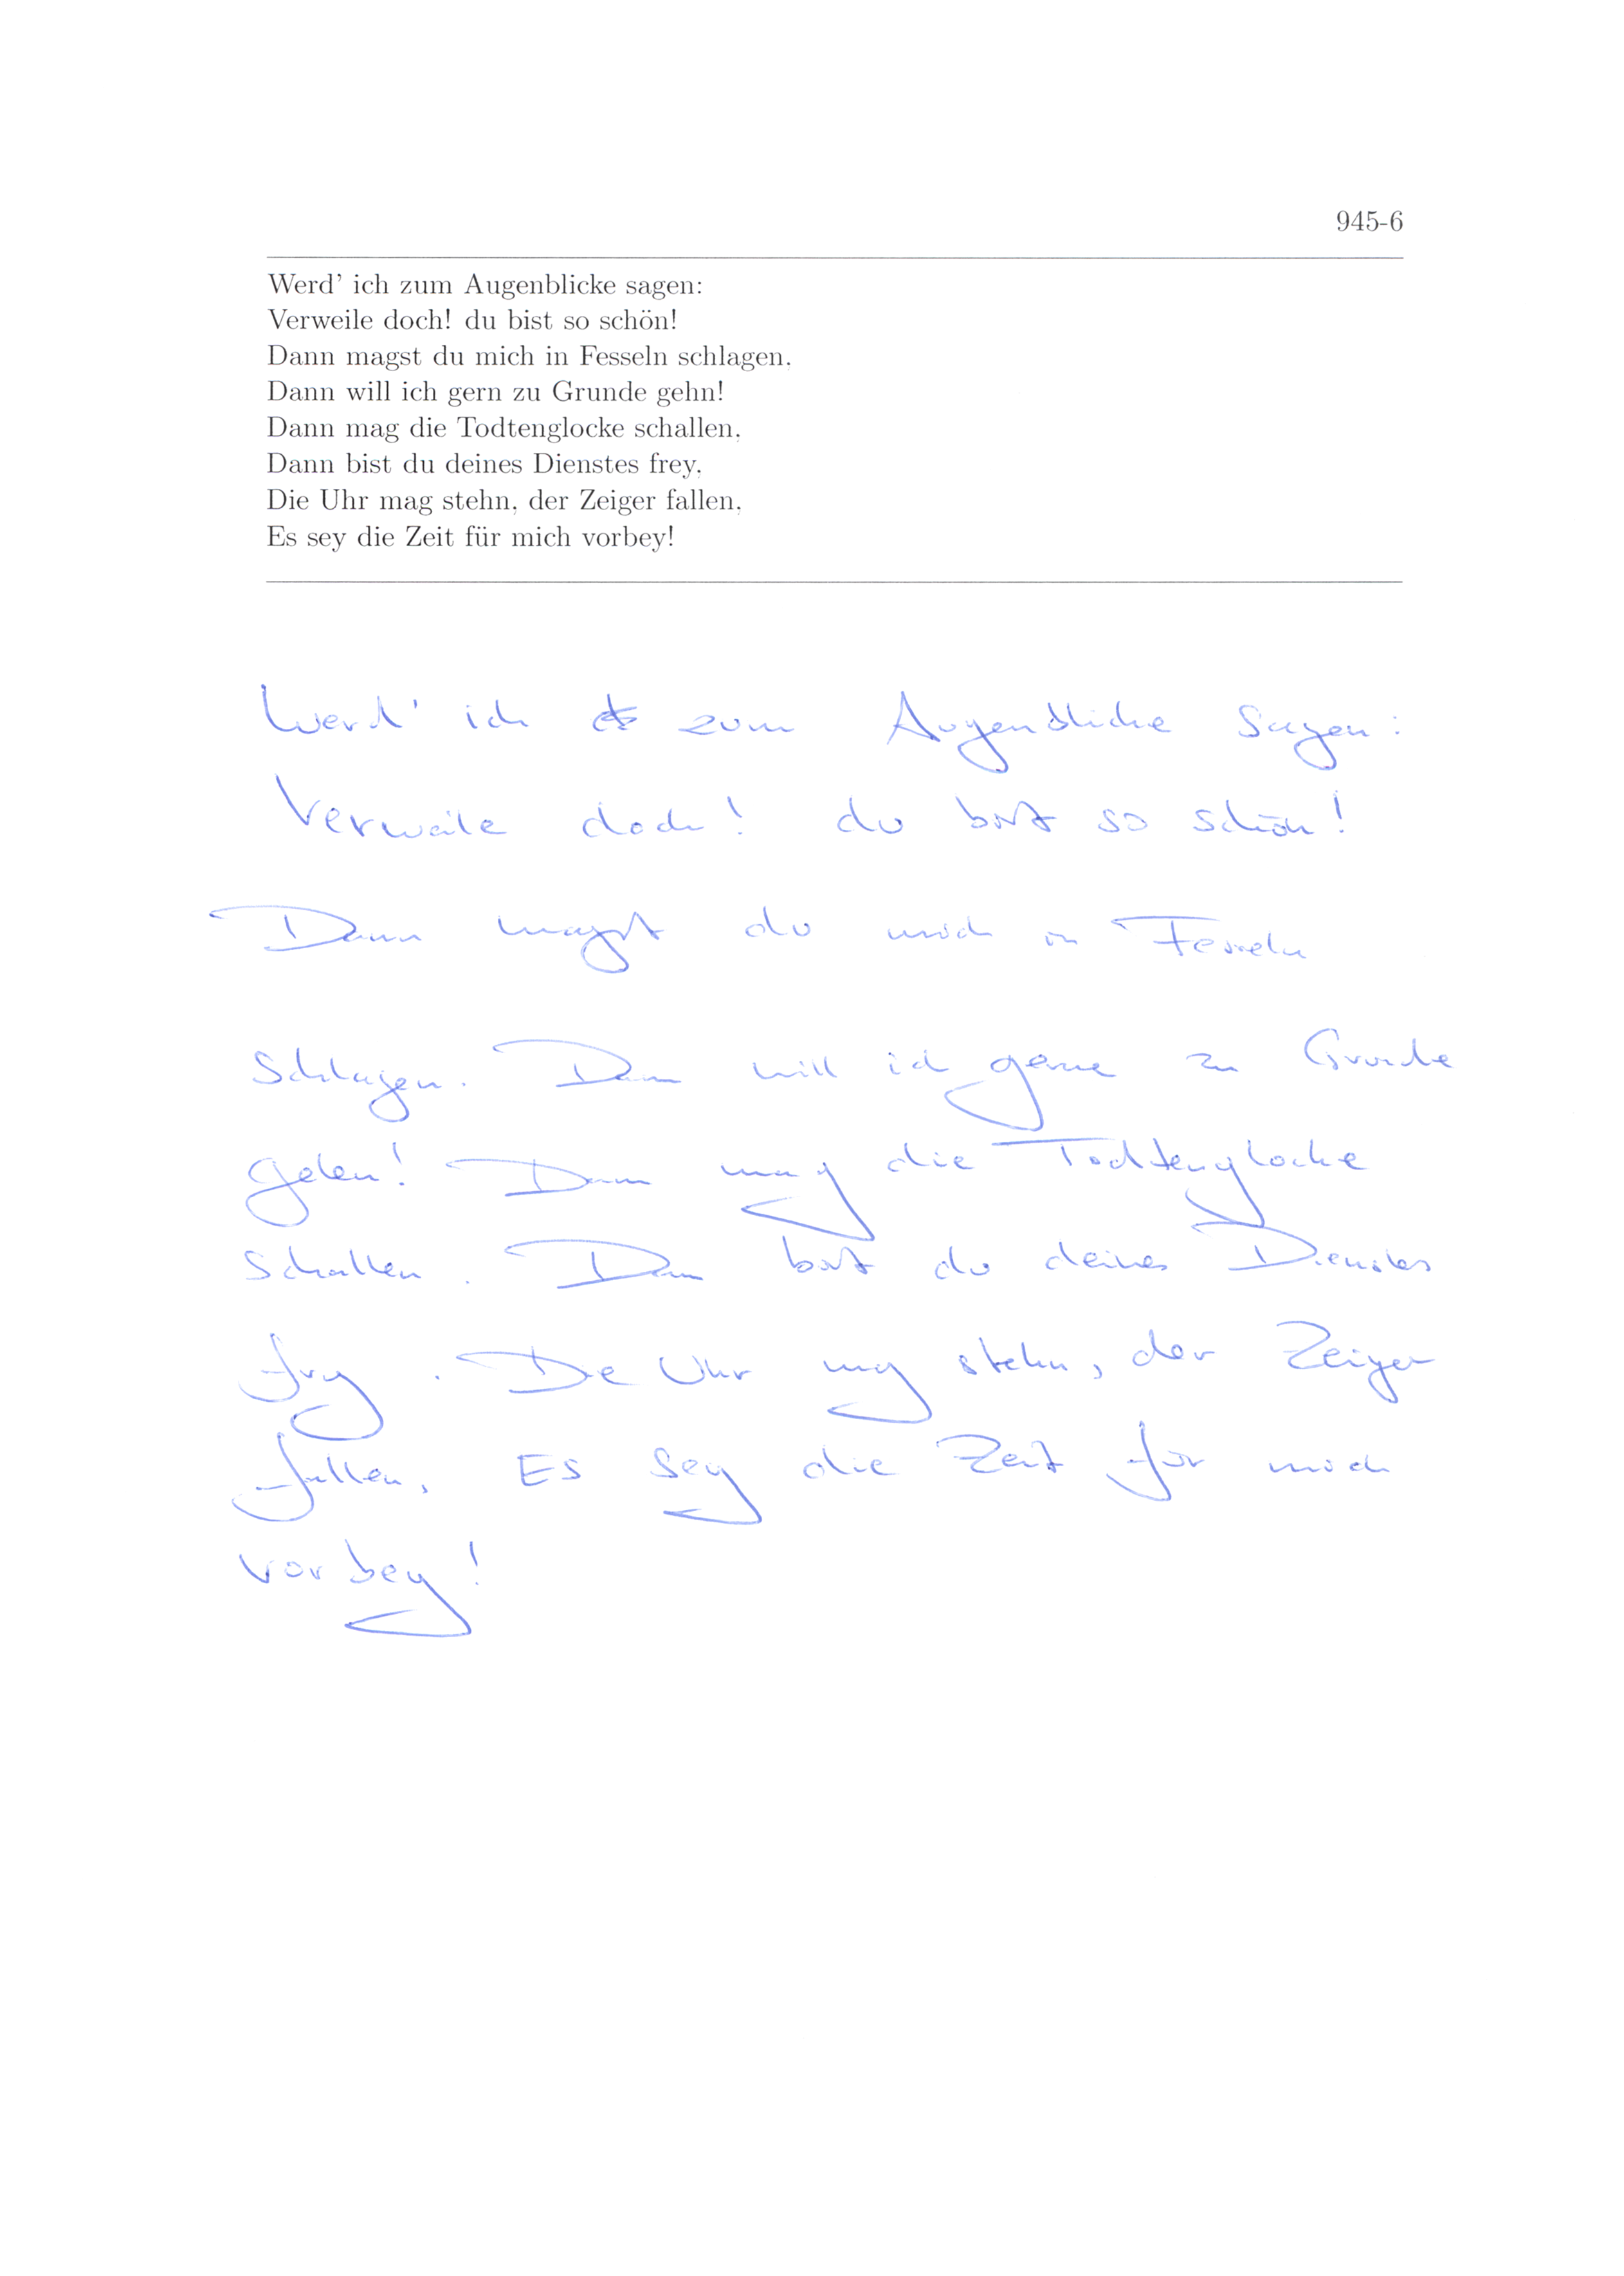 945-6
Werd' ich zum Augenblicke sagen:
Verweile doch! du bist so schön!
Dann magst du mich in Fesseln schlagen.
Dann will ich gern zu Grunde gehn!
Dann mag die Todtenglocke schallen.
Dann bist du deines Dienstes frey.
Die Uhr mag stehn, der Zeiger fallen.
Es sey die Zeit für mich vorbey!
Werd' ich zum Augenblicke sagen:
Verweile doch! du bist so schön!
Dann magst du mich in Fesseln
schlagen. Dann will ich gerne zu Grunde
gehen! Dann mag die Todtenglocke
schallen. Dann bist du deines Dienstes
frey. Die Uhr mag stehn, der Zeiger
fallen, Es sey die Zeit für mich
vorbey!